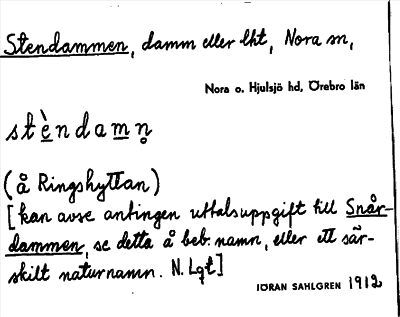 Stendammen, damm eller lht, Nora sn,
Nora o. Hjulsjö hd, Örebro län
stèndamn̥
(å Ringshyttan)
[kan avse antingen uttalsuppgift till Snår-
dammen, se detta å beb. namn, eller ett sär-
skilt naturnamn. N. Lgt]
JÖRAN SAHLGREN 1912